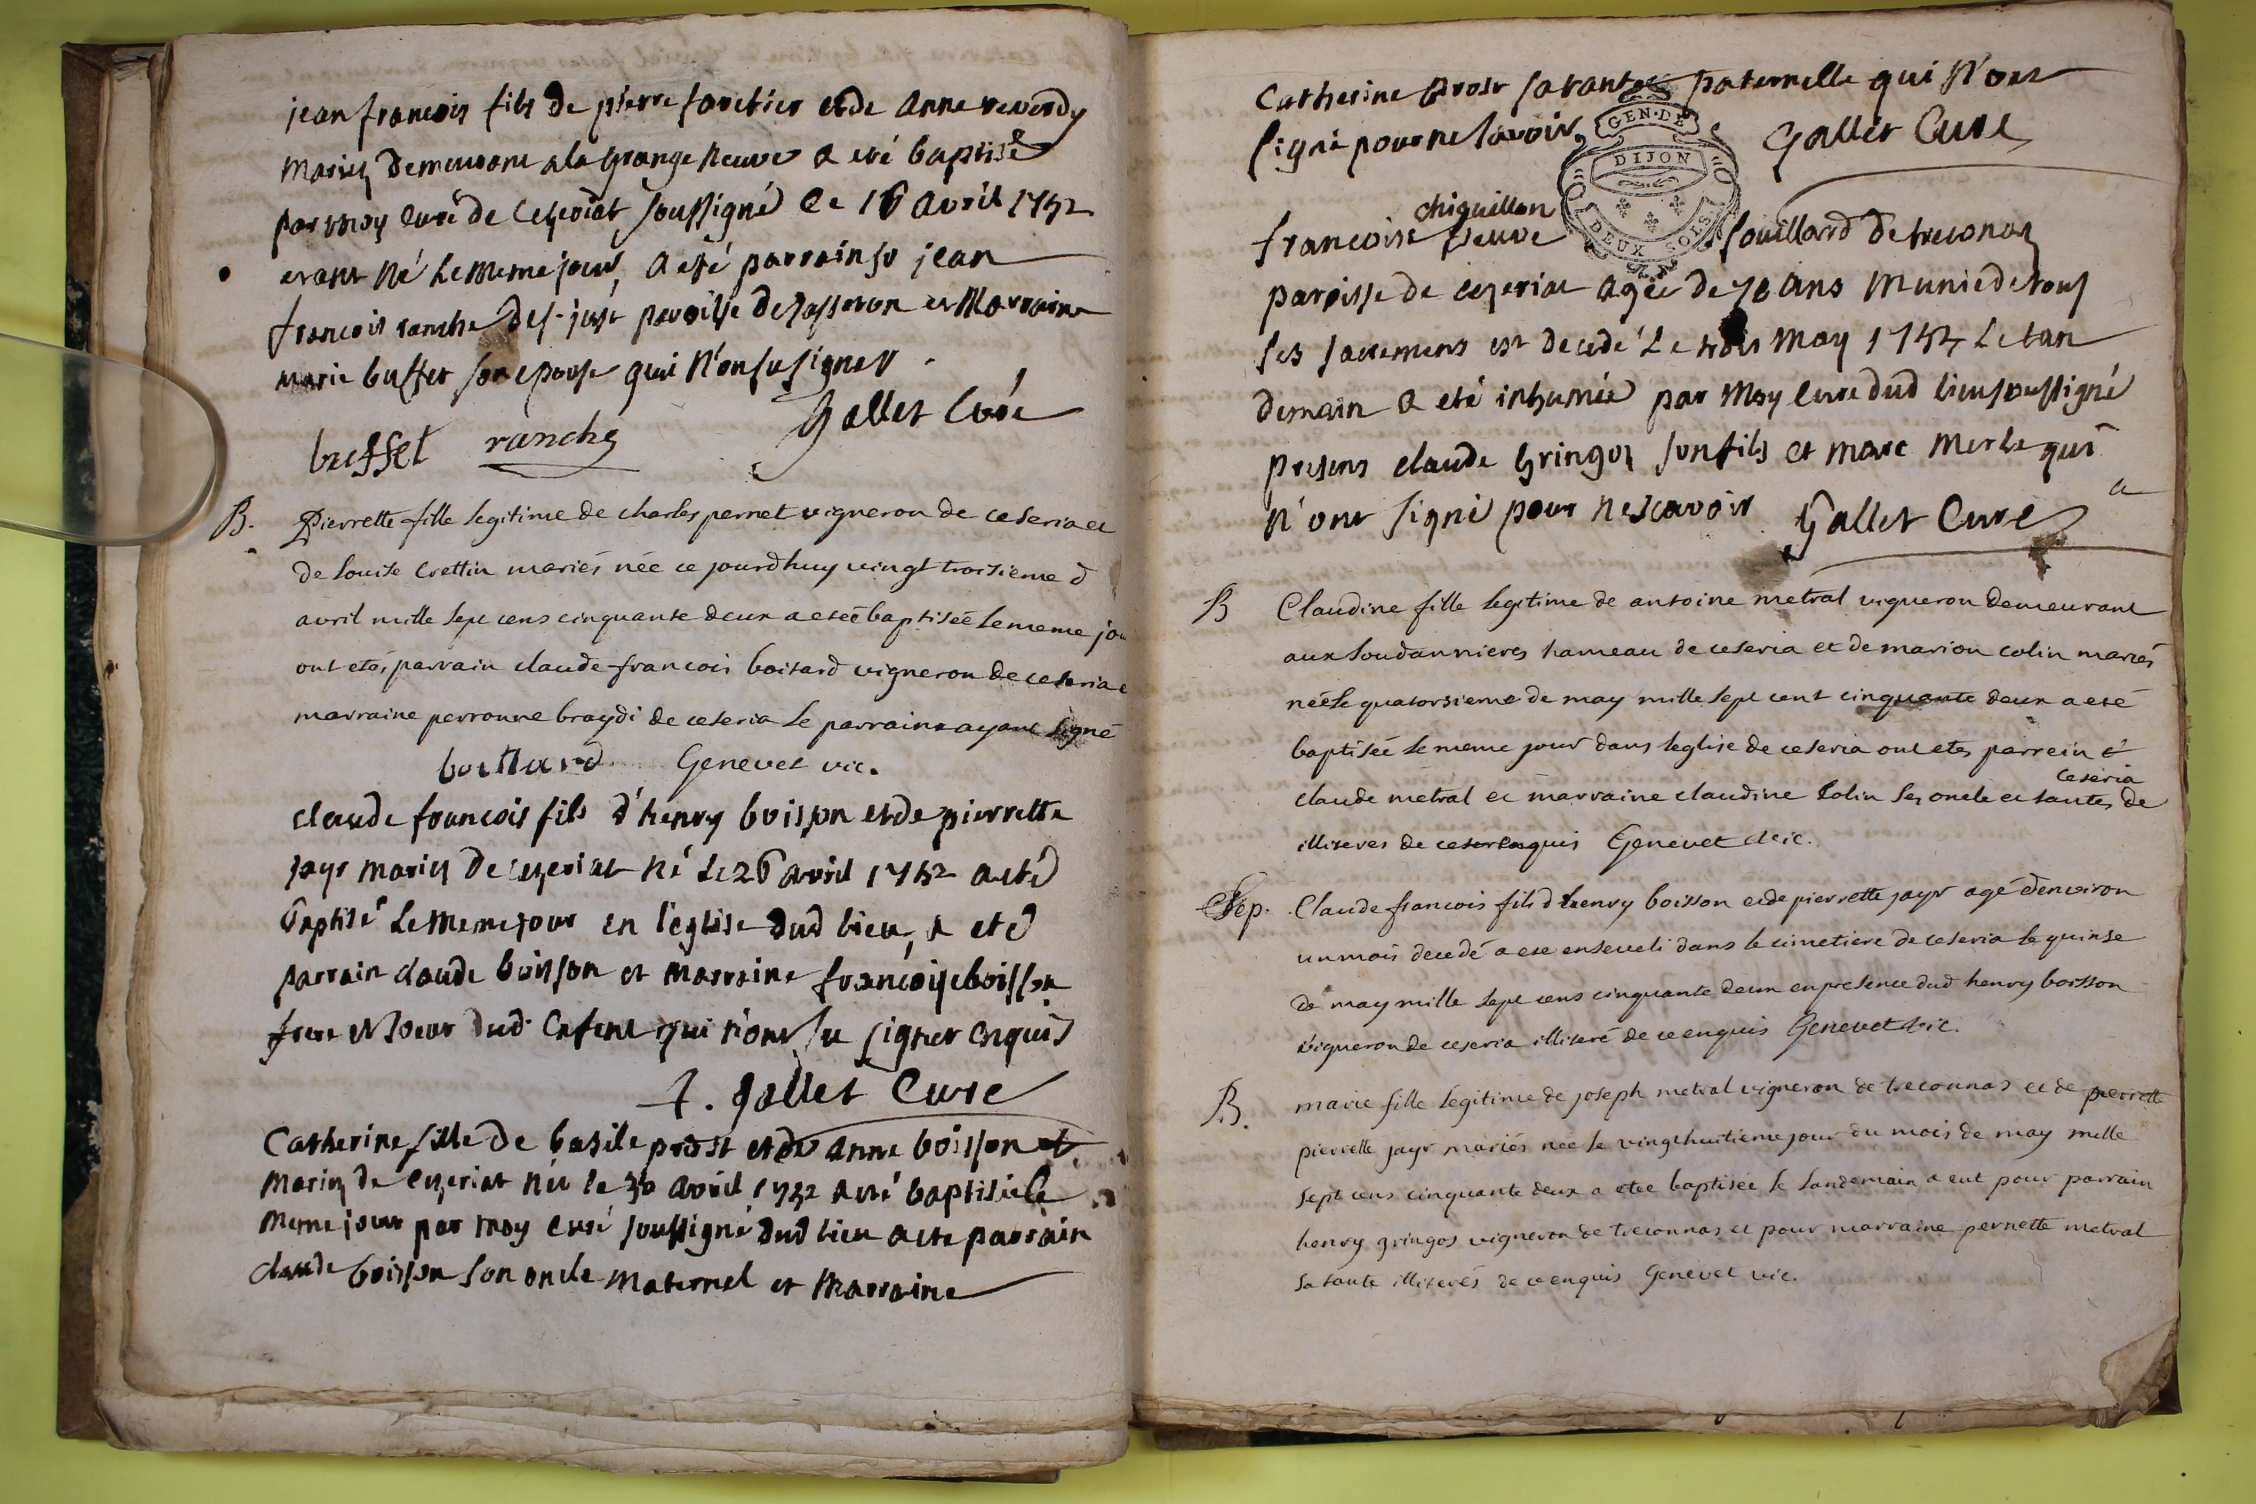 jean francois fils de pierre forestier et de anne reverdy
mariez demeurant a la grange neuve a eté baptisé
par moy curé de Ceyzeriat soussigné le 16 avril 1752
etant né le meme jour, a eté parrain sr jean
francois ranche de st just paroisse de jasseron et Marraine
marie buffet son epouse qui n'on su signer.
Gallet Curé
buffet ranche
B. Pierrette fille legitime de charles pernet vigneron de ceseria et
de Louise Crettin mariés née ce jourdhuy vingt troisieme d
avril mille sept cens cinquante deux a etéé baptiséé le meme jou
ont etés parrain claude francois boitard vigneron de ceseria e
marraine perronne braydi de ceseria le parrain ayant signé
Genevet vic.
claude francois fils d'henry boisson et de pierrette
jayr mariez de ceyzeriat né le 26 avril 1752 a eté
baptisé le meme jour en l'église dud lieu, a eté
parrain claude boisson et marraine francoise boisson
frere et soeur dud. enfent qui n'ont su signer enquis
f. gallet Curé
Catherine fille de basile prost et de anne boisson et
Mariez de Ceyzeriat née le 30 avril 1752 a eté baptisée le
meme jour par moy curé soussigné dud lieu a ete parrain
claude boisson son oncle maternel et Marraine
Catherine Prost sa tante paternelle qui n'ont
signé pour ne savoir, Gallet Curé
GEN. DE
DIJON
DEUX SOLS
chiquillon
francoise veuve souillard de treconaz
paroisse de ceyzeriat agée de 70 ans munie de tous
ses sacremens est decedé le trois may 1752 le len
demain a eté inhumée par moy curé dud lieu soussigné
presens claude gringoz son fils et marc merle qui
n'ont signé pour ne scavoir Gallet Curé
B Claudine fille legitime de antoine metral vigneron demeurant
aux soudannieres hameau de ceseria et de marion colin mariés
néé le quatorsieme de may mille sept cent cinquante deux a eté
baptiséé le meme jour dans leglise de ceseria ont etés parrein &
ceseria
claude metral et marraine claudine Colin ses oncle et tantes de
illiteres de ce enquis Genevet vic.
Sep. Claude francois fils d henry boisson et de pierrette jayr agé denviron
un mois decedé a ete enseveli dans le cimetiere de ceseria le quinse
de may mille sept cens cinquante deux en presence dud henry boisson
vigneron de ceseria illiteré de ce enquis Genevet vic.
B. marie fille legitime de joseph metral vigneron de treconnas et de pierrette
pierrette jayr mariés née le vingthuitieme jour du mois de may mille
sept cens cinquante deux a etéé baptiséé le landemain a eut pour parrain
henry gringos vigneron de treconnas et pour marraine pernette metral
sa tante illiterés de ce enquis Genevet vic.